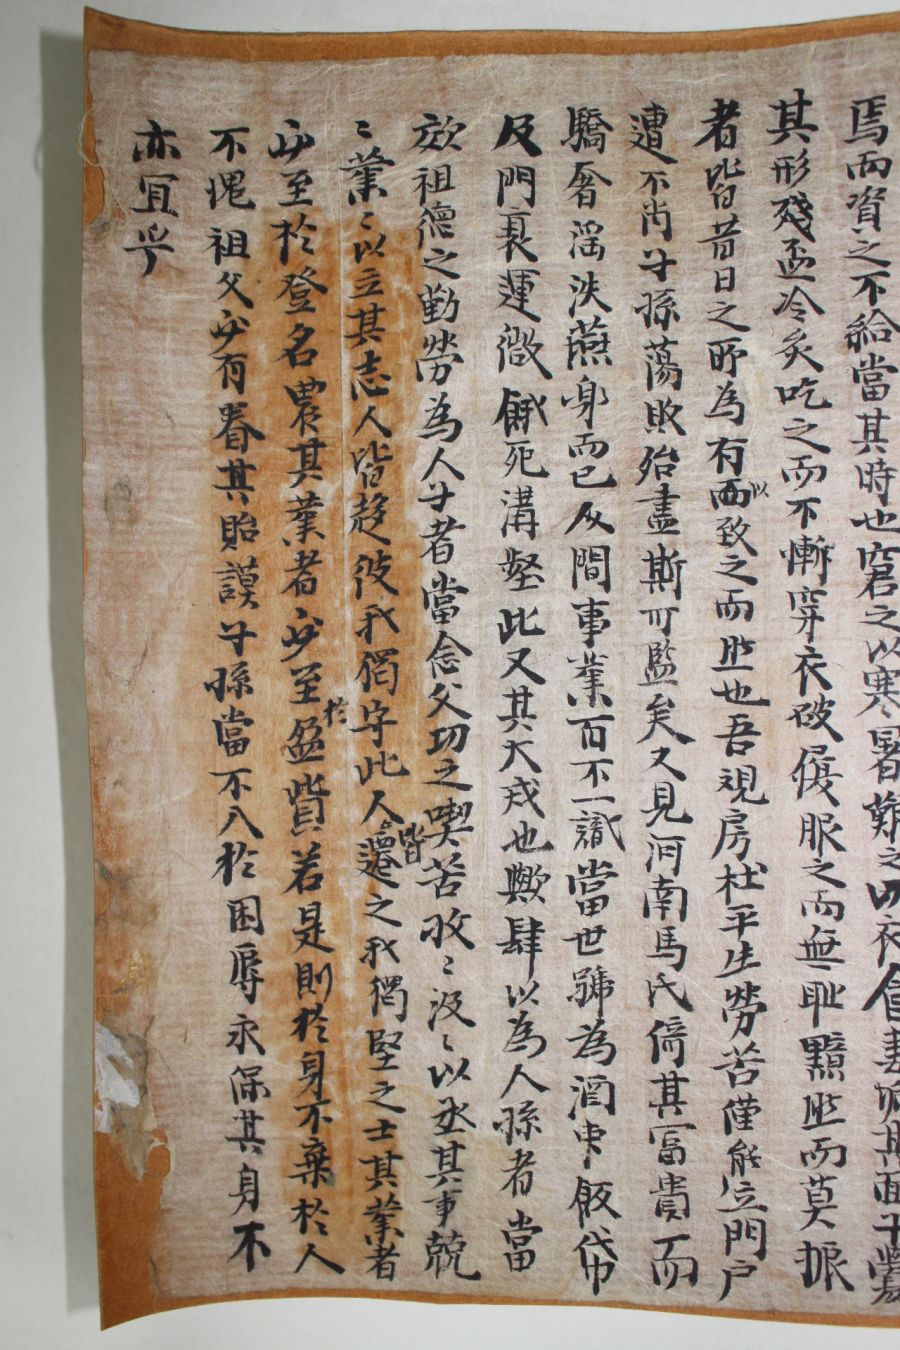 焉而資之不給當其時也窘之以寒暑難之以衣食妻垢其面子
其形殘盃冷炙吃之而不慚穿衣破履服之而無耻黯然而莫振
者皆昔日之所為有以而致之而然也吾視房杜平生勞苦僅能立門戶
遭不肖子孫蕩敗殆盡斯可監矣又見河南馬氏倚其冨貴而
驕奢淫泆燕身而已人間事業百不一識當世號為酒甲飯帒
及門衰運微餓死溝壑此又其大戒也歟肆以為人孫者當
祖德之勤勞為人子者當念父功之喫苦孜〻汲〻以丞其事兢
〻業〻以立其志人皆趍彼我獨守此人皆遷之我獨堅之士其業者
必至於登名農其業者必至於盈貲若是則於身不棄於人
不愧祖父必有眷其貽謨子孫當不入於困辱永保其身不
亦冝乎